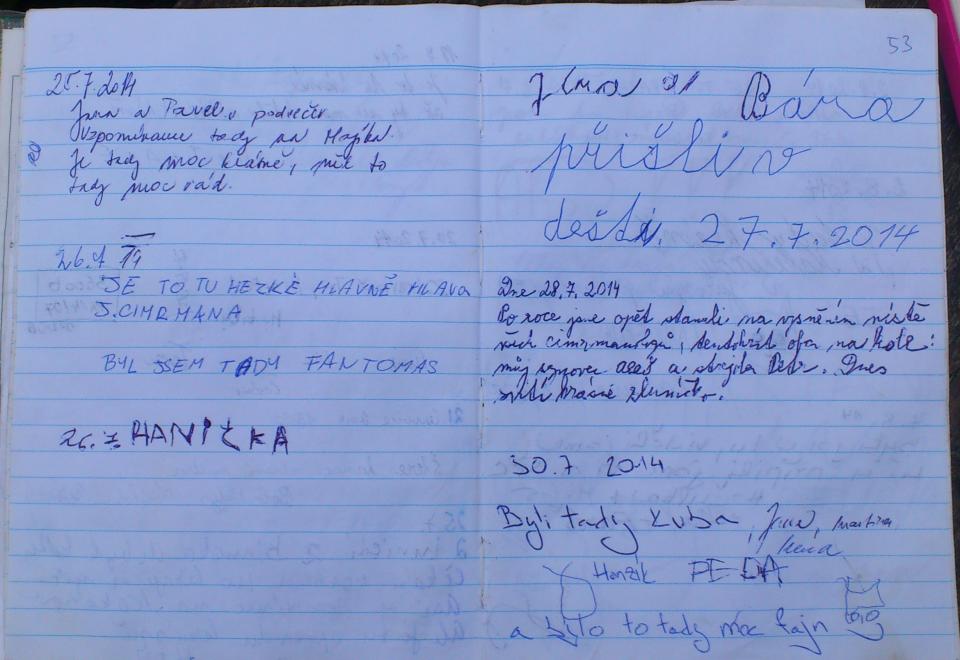 25.7.2014
Jana a Pavel v podvečer
Vzpomínáme tady na Majíka
Je tady moc krásně, měl to
tady moc rád.
26.7 14
JE TO TU HEZKÉ HLAVNĚ HLAVA
J. CIMRMANA
BYL JSEM TADY FANTOMAS
26.7. HANIČKA
53
a Bára
přišli v
dešti. 27.7.2014
Dne 28.7.2014
Po roce jsme opět stanuli na místě
cimrmanologů, tentokrát oba, na kole:
můj synovec a strejda Petr. Dnes
svítí krásně sluníčko.
30.7 2014
Byli tady Kuba, Jana, Martina
Hanzík PEDA
a bylo to tady moc fajn